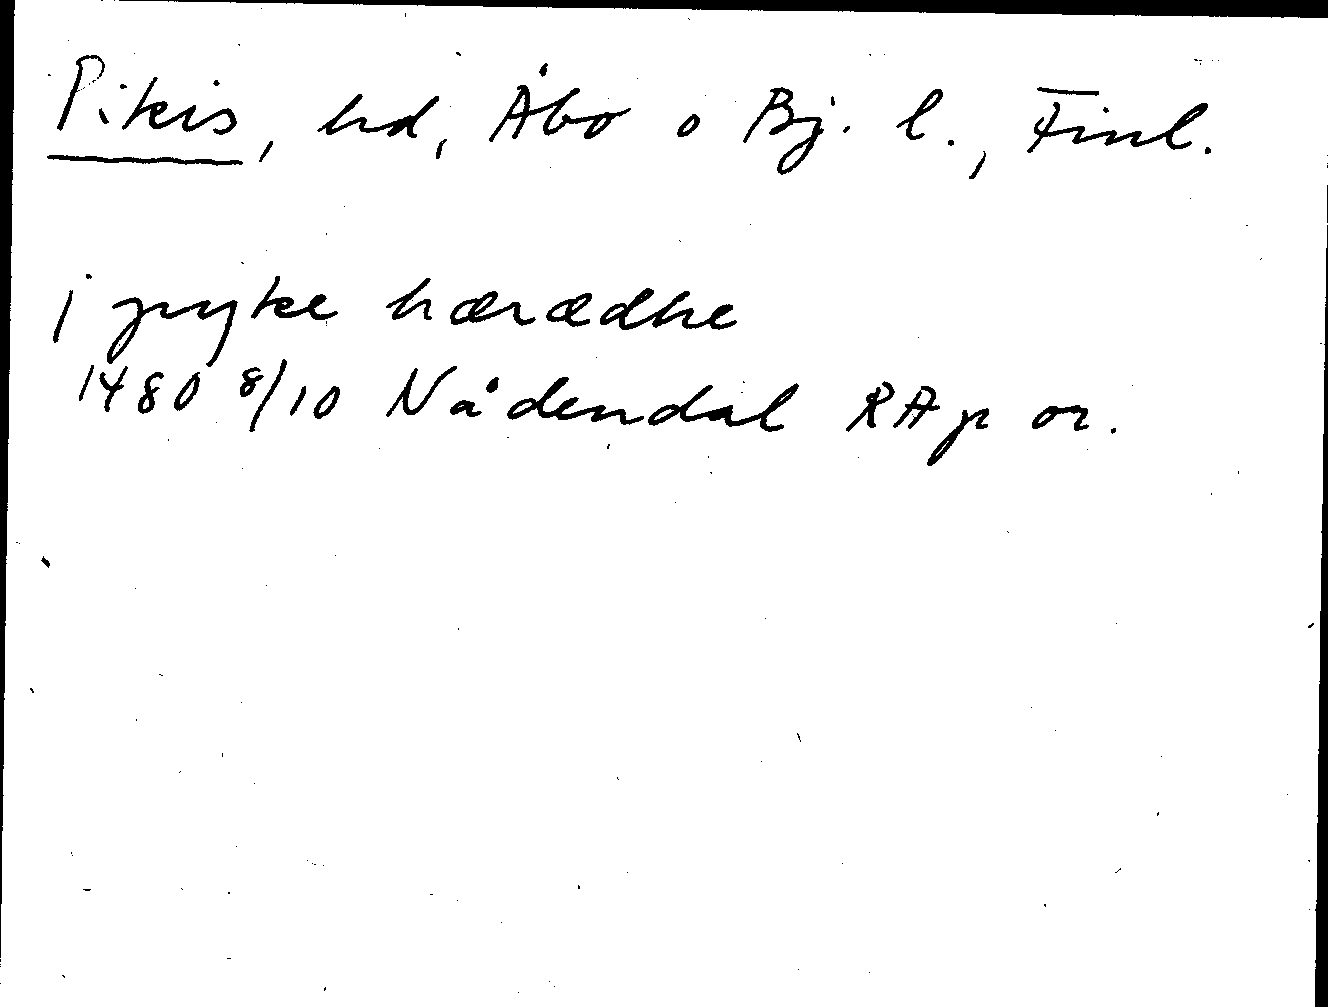 Pikis, hd, Åbo o Bj. l., Finl.
j pyke hærædhe
1480 8/10 Nådendal RAp or.